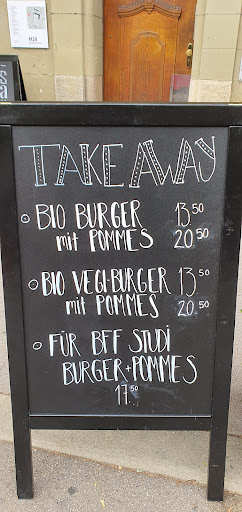 TAKE AWAY
BIO BURGER 13.50
mit POMMES 20.50
BIO VEGI-BURGER 13.50
mit POMMES 20.50
FÜR BFF STUDI
BURGER+POMMES
17.50